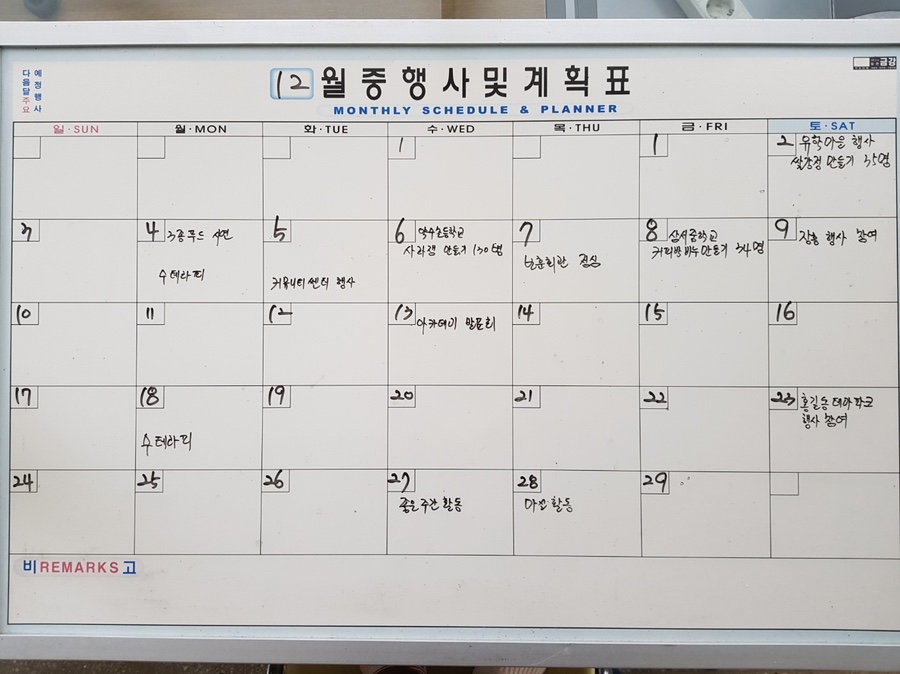 예정행사
다음달주요
12월중행사및계획표
MONTHLY SCHEDULE & PLANNER
금강
일·SUN 월·MON 화·TUE 수·WED 목·THU 금·FRI 토·SAT
1 1 2 유학마을 행사
쌀강정 만들기 35명
3 4 5 6 약수초등학교 7 8 삼서중학교 9 장흥 행사 참여
사라갱 만들기 130명
커피박비누만들기 34명
점심
수테라피
커뮤니티센터 행사
10 11 12 13 아카데미 발표회 14 15 16
17 18 19 20 21 22 23 홍길동테마파크
행사 참여
수테라피
24 25 26 27 28 29
좋은주간활동
마을활동
비REMARKS고